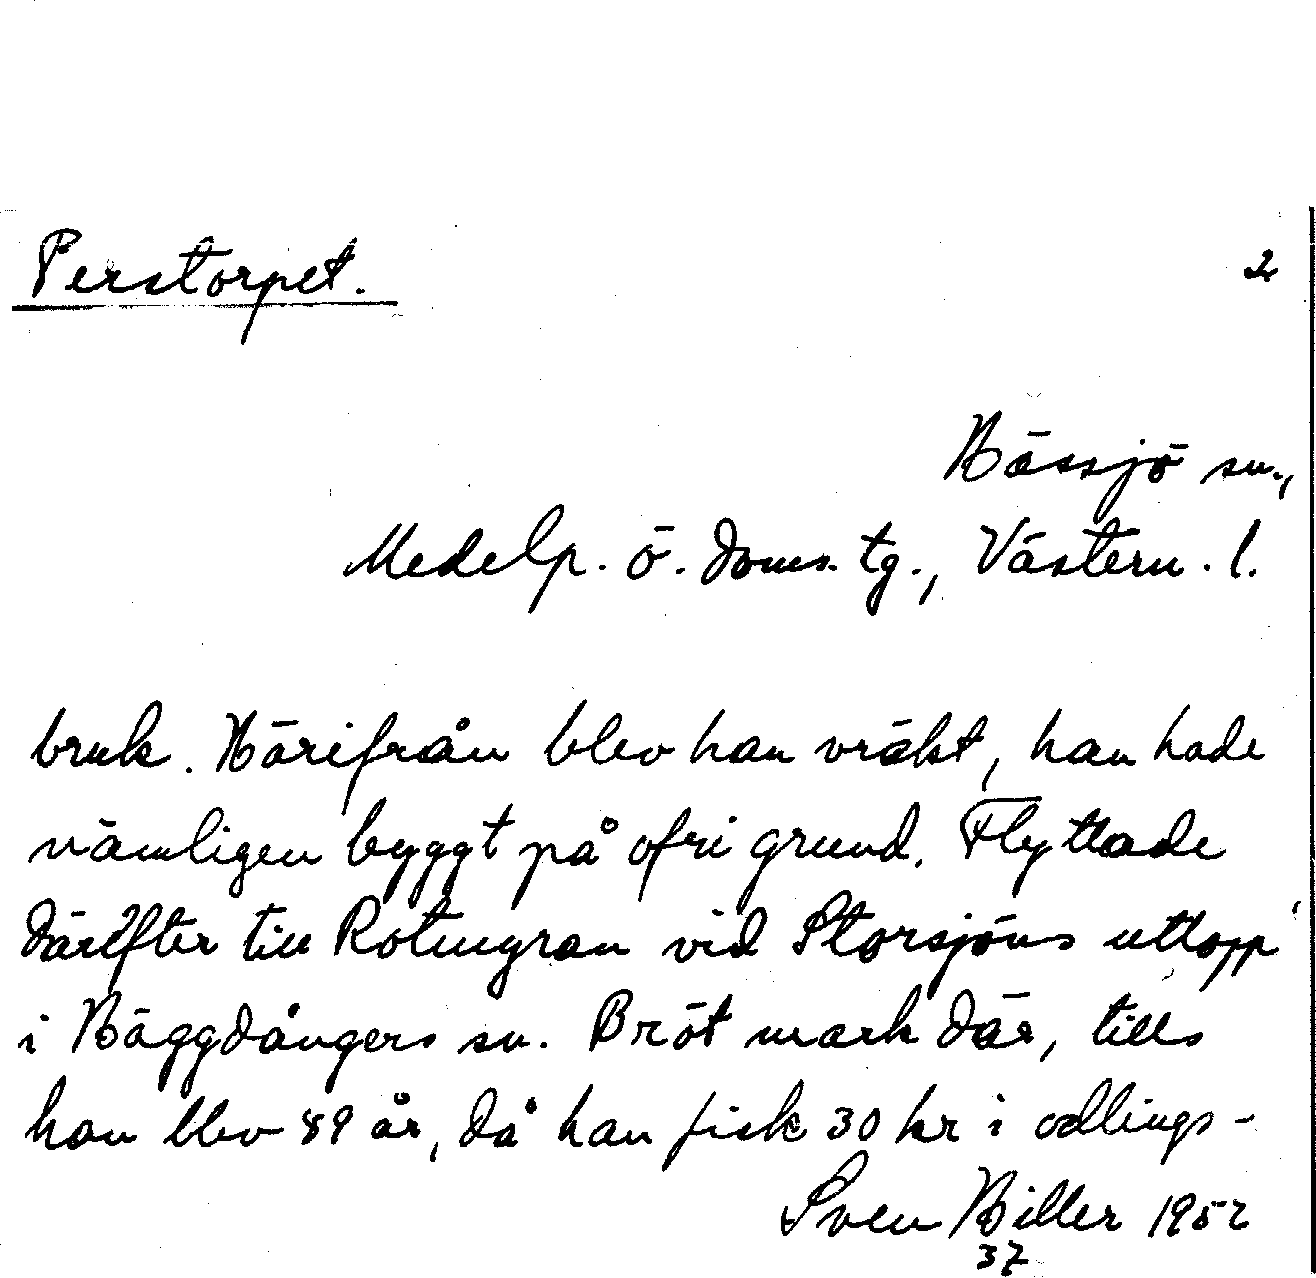 Perstorpet.
2
Hässjö sn.,
Medelp. ö. doms. tg., Västern. l.
bruk. Härifrån blev han vräkt, han hade
nämligen byggt på ofri grund. Flyttade
därefter till Rotmyran vid Storsjöns utlopp
i Häggdångers sn. Bröt mark där, tills
han blev 89 år, då han fick 30 kr i odlings-
Sven Hiller 1952
37